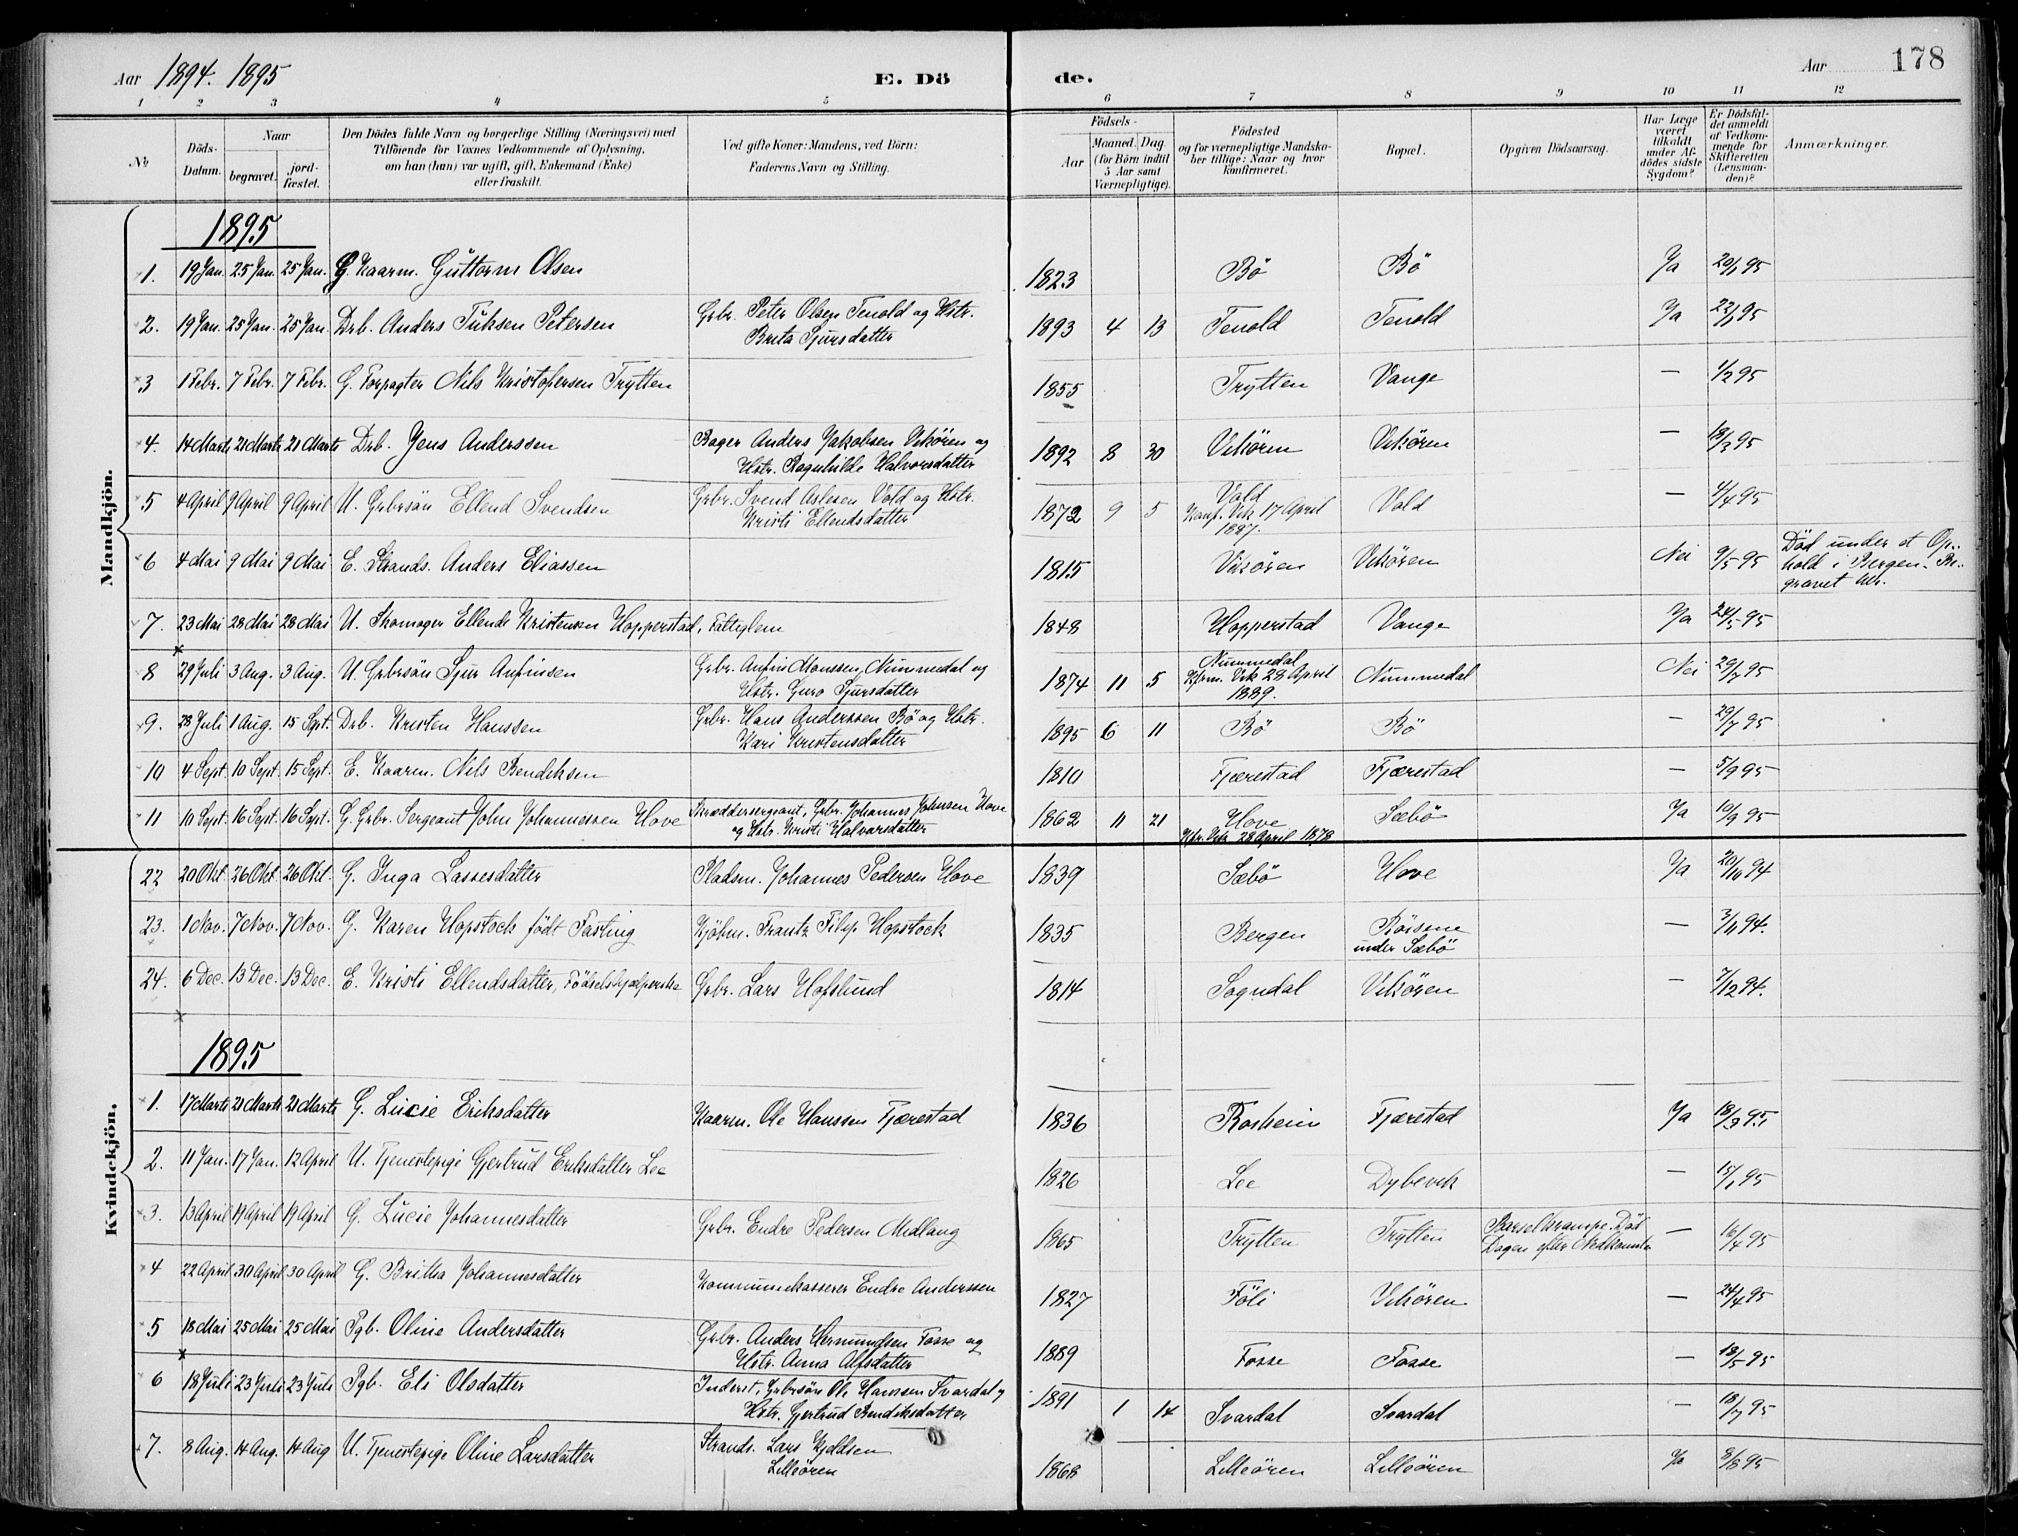 178
Aar 1894. 1895 E. Dö de. Aar
1 2 3 4 5 6 7 8 9 10 11 12
No Döds-Datum. Naar begravet. jordfæstet. Den Dödes fulde Navn og borgerlige Stilling (Næringsvei) med Tilföiende for Voxnes Vedkommende af Oplysning, om han (hun) var ugift, gift, Enkemand (Enke) eller fraskilt. Ved gifte Koner: Mandens, ved Börn: Faderens Navn og Stilling. Födsels- Aar Maaned. Dag. (for Börn indtil 5 Aar samt Værnepligtige). Födested og for værnepligtige Mandskaber tillige: Naar og hvor konfirmeret. Bopæl. Opgiven Dödsaarsag. Har Læge været tilkaldt under Afdödes sidste Sygdom? Er Dödsfaldet anmeldt af Vedkommende for Skifteretten (Lensmanden)? Anmærkninger.
Mandkjön.
1895
1. 19 Jan. 25 Jan. 25 Jan. G. Kaarm. Guttorm Olsen 1823 Bö Bö Ja 20/1 95
2. 19 Jan. 25 Jan. 25 Jan. Drb. Anders Tuksen Petersen Grbr. Peter Olsen Tenold og Hstr. Brita Sjursdatter 1893 4 13 Tenold Tenold Ja 22/1 95
3 1 Febr. 7 Febr. 7 Febr. G. Forpagter Nils Kristofersen Trytten 1855 Trytten Vange — 1/2 95
4. 14 Marts 21 Marts 21 Marts Drb. Jens Anderssen Bager Anders Jakobsen Vikören og Hstr. Ragnhilde Halvorsdatter 1892 8 30 Vikören Vikören — 18/3 95
5 4 April 9 April 9 April U. Grbrsön Ellend Svendsen Grbr. Svend Aslesen Vold og Hstr. Kristi Ellendsdatter 1872 9 5 Vold Konf. Vik 17 April 1887. Vold — 4/4 95
6 4 Mai 9 Mai 9 Mai E. Strands. Anders Eliassen 1815 Vikören Vikören Nei 9/5 95 Död under et Ophold i Bergen. Begravet her.
7. 23 Mai 28 Mai 28 Mai U. Skomager Ellend Kristensen Hopperstad, Fattiglem 1848 Hopperstad Vange Ja 24/5 95
8 29 Juli 3 Aug. 3 Aug. U. Grbrsön Sjur Anfinsen Grbr. Anfin Monssen Nummedal og Hstr. Guro Sjursdatter 1874 11 5 Nummedal Kfrm. Vik 28 April 1889. Nummedal Nei 29/7 95
9. 28 Juli 1 Aug. 15 Spt. Drb. Kristen Hanssen Grbr. Hans Anderssen Bö og Hstr. Kari Kristensdatter 1895 6 11 Bö Bö — 29/7 95
10 4 Sept. 10 Sept. 15 Sept. E. Kaarm. Nils Bendiksen 1810 Fjærestad Fjærestad — 5/9 95
11 10 Sept. 16 Sept. 16 Sept. G. Grbr. Sergeant John Johannessen Hove Skræddersergeant, Grbr. Johannes Johnsen Hove og Hstr. Kristi Halvorsdatter 1862 11 21 Hove Kfr. Vik 28 April 1878 Sæbö Ja 10/9 95
Kvindekjön.
22 20 Okt. 26 Okt. 26 Okt. G. Inga Lassesdatter Pladsm. Johannes Pedersen Hove 1839 Sæbö Hove Ja 20/10 94
23. 1 Nov. 7 Nov. 7 Nov. G. Karen Hopstock födt Fasting Kjöbm. Frantz Filip Hopstock 1835 Bergen Röisene under Sæbö — 3/11 94.
24. 6 Dec. 13 Dec. 13 Dec. E. Kristi Ellendsdatter, Födselshjælperske Grbr. Lars Hofslund 1814 Sogndal Vikören — 7/12 94.
1895
1. 17 Marts 21 Marts 21 Marts G. Lucie Eriksdatter Kaarm. Ole Hanssen Fjærestad 1836 Rosheim Fjærestad Ja 18/3 95
2. 11 Jan. 17 Jan. 12 April U. Tjenestepige Gjertrud Eriksdatter Lee 1826 Lee Dybevik — 15/1 95
3. 13 April 19 April 19 April G. Lucie Johannesdatter Grbr. Endre Pedersen Midlang 1865 Trytten Trytten Barselkrampe. Död Dagen efter Nedkomsten — 16/4 95
4 22 April 30 April 30 April G. Britha Johannesdatter Kommunekasserer Endre Anderssen 1827 Föli Vikören — 24/4 95
5 18 Mai 25 Mai 25 Mai Pgb. Oline Andersdatter Grbr. Anders Hermundsen Fosse og Hstr. Anna Alfsdatter 1889 Fosse Fosse — 18/5 95
6 18 Juli 23 Juli 23 Juli Pgb. Eli Olsdatter Inderst, Grbrsön Ole Hanssen Svardal og Hstr. Gjertrud Bendiksdatter 1891 1 14 Svardal Svardal — 18/7 95
7. 8 Aug. 14 Aug. 14 Aug U. Tjenestepige Oline Larsdatter Strands. Lars Kjeldsen Lilleören 1868 Lilleören Lilleören Ja 8/8 95